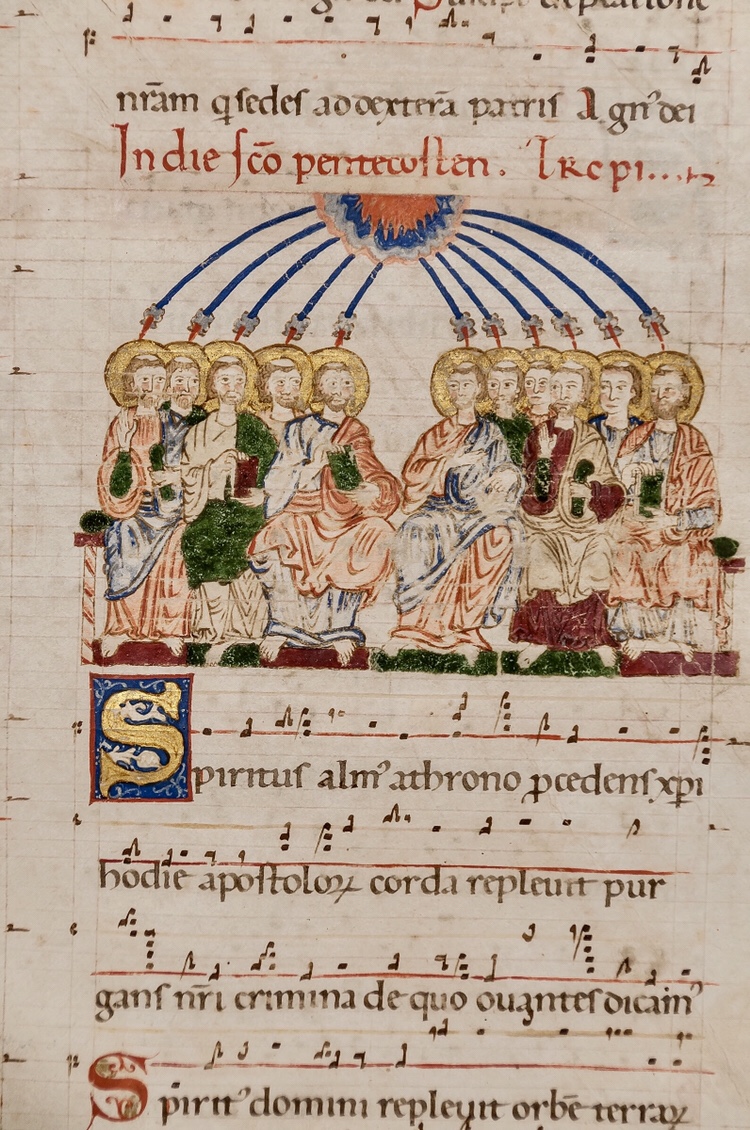 deprecatione
nr̄am q sedes ad dexterā patris Agn' dei
In die sc̄o pentecosten. Trop
Spiritus alm' athrono ꝓcedens xp̄i
hodie apostoloꝝ corda repleuit pur
gans nr̄i crimina de quo ouantes dicam'
Spirit' domini repleuit orbē terraꝝ